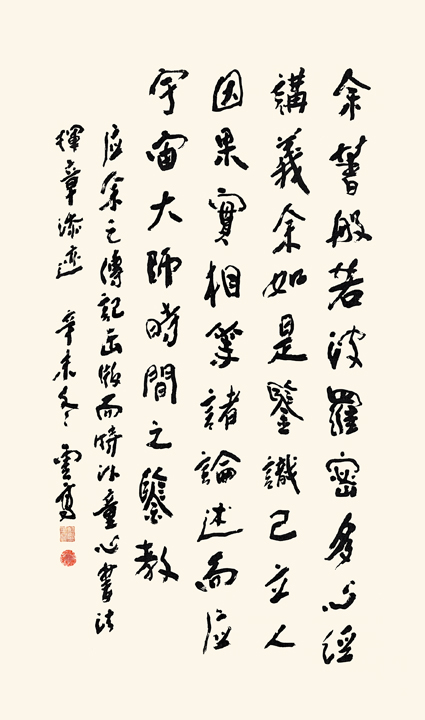 余著般若波羅密多心經
講義余如是鑒識己立人
因果實相等諸論述而應
宇宙大師時間之鑒教
應余之傳記出版而時以童心書法
輝章添 辛未冬 雲高